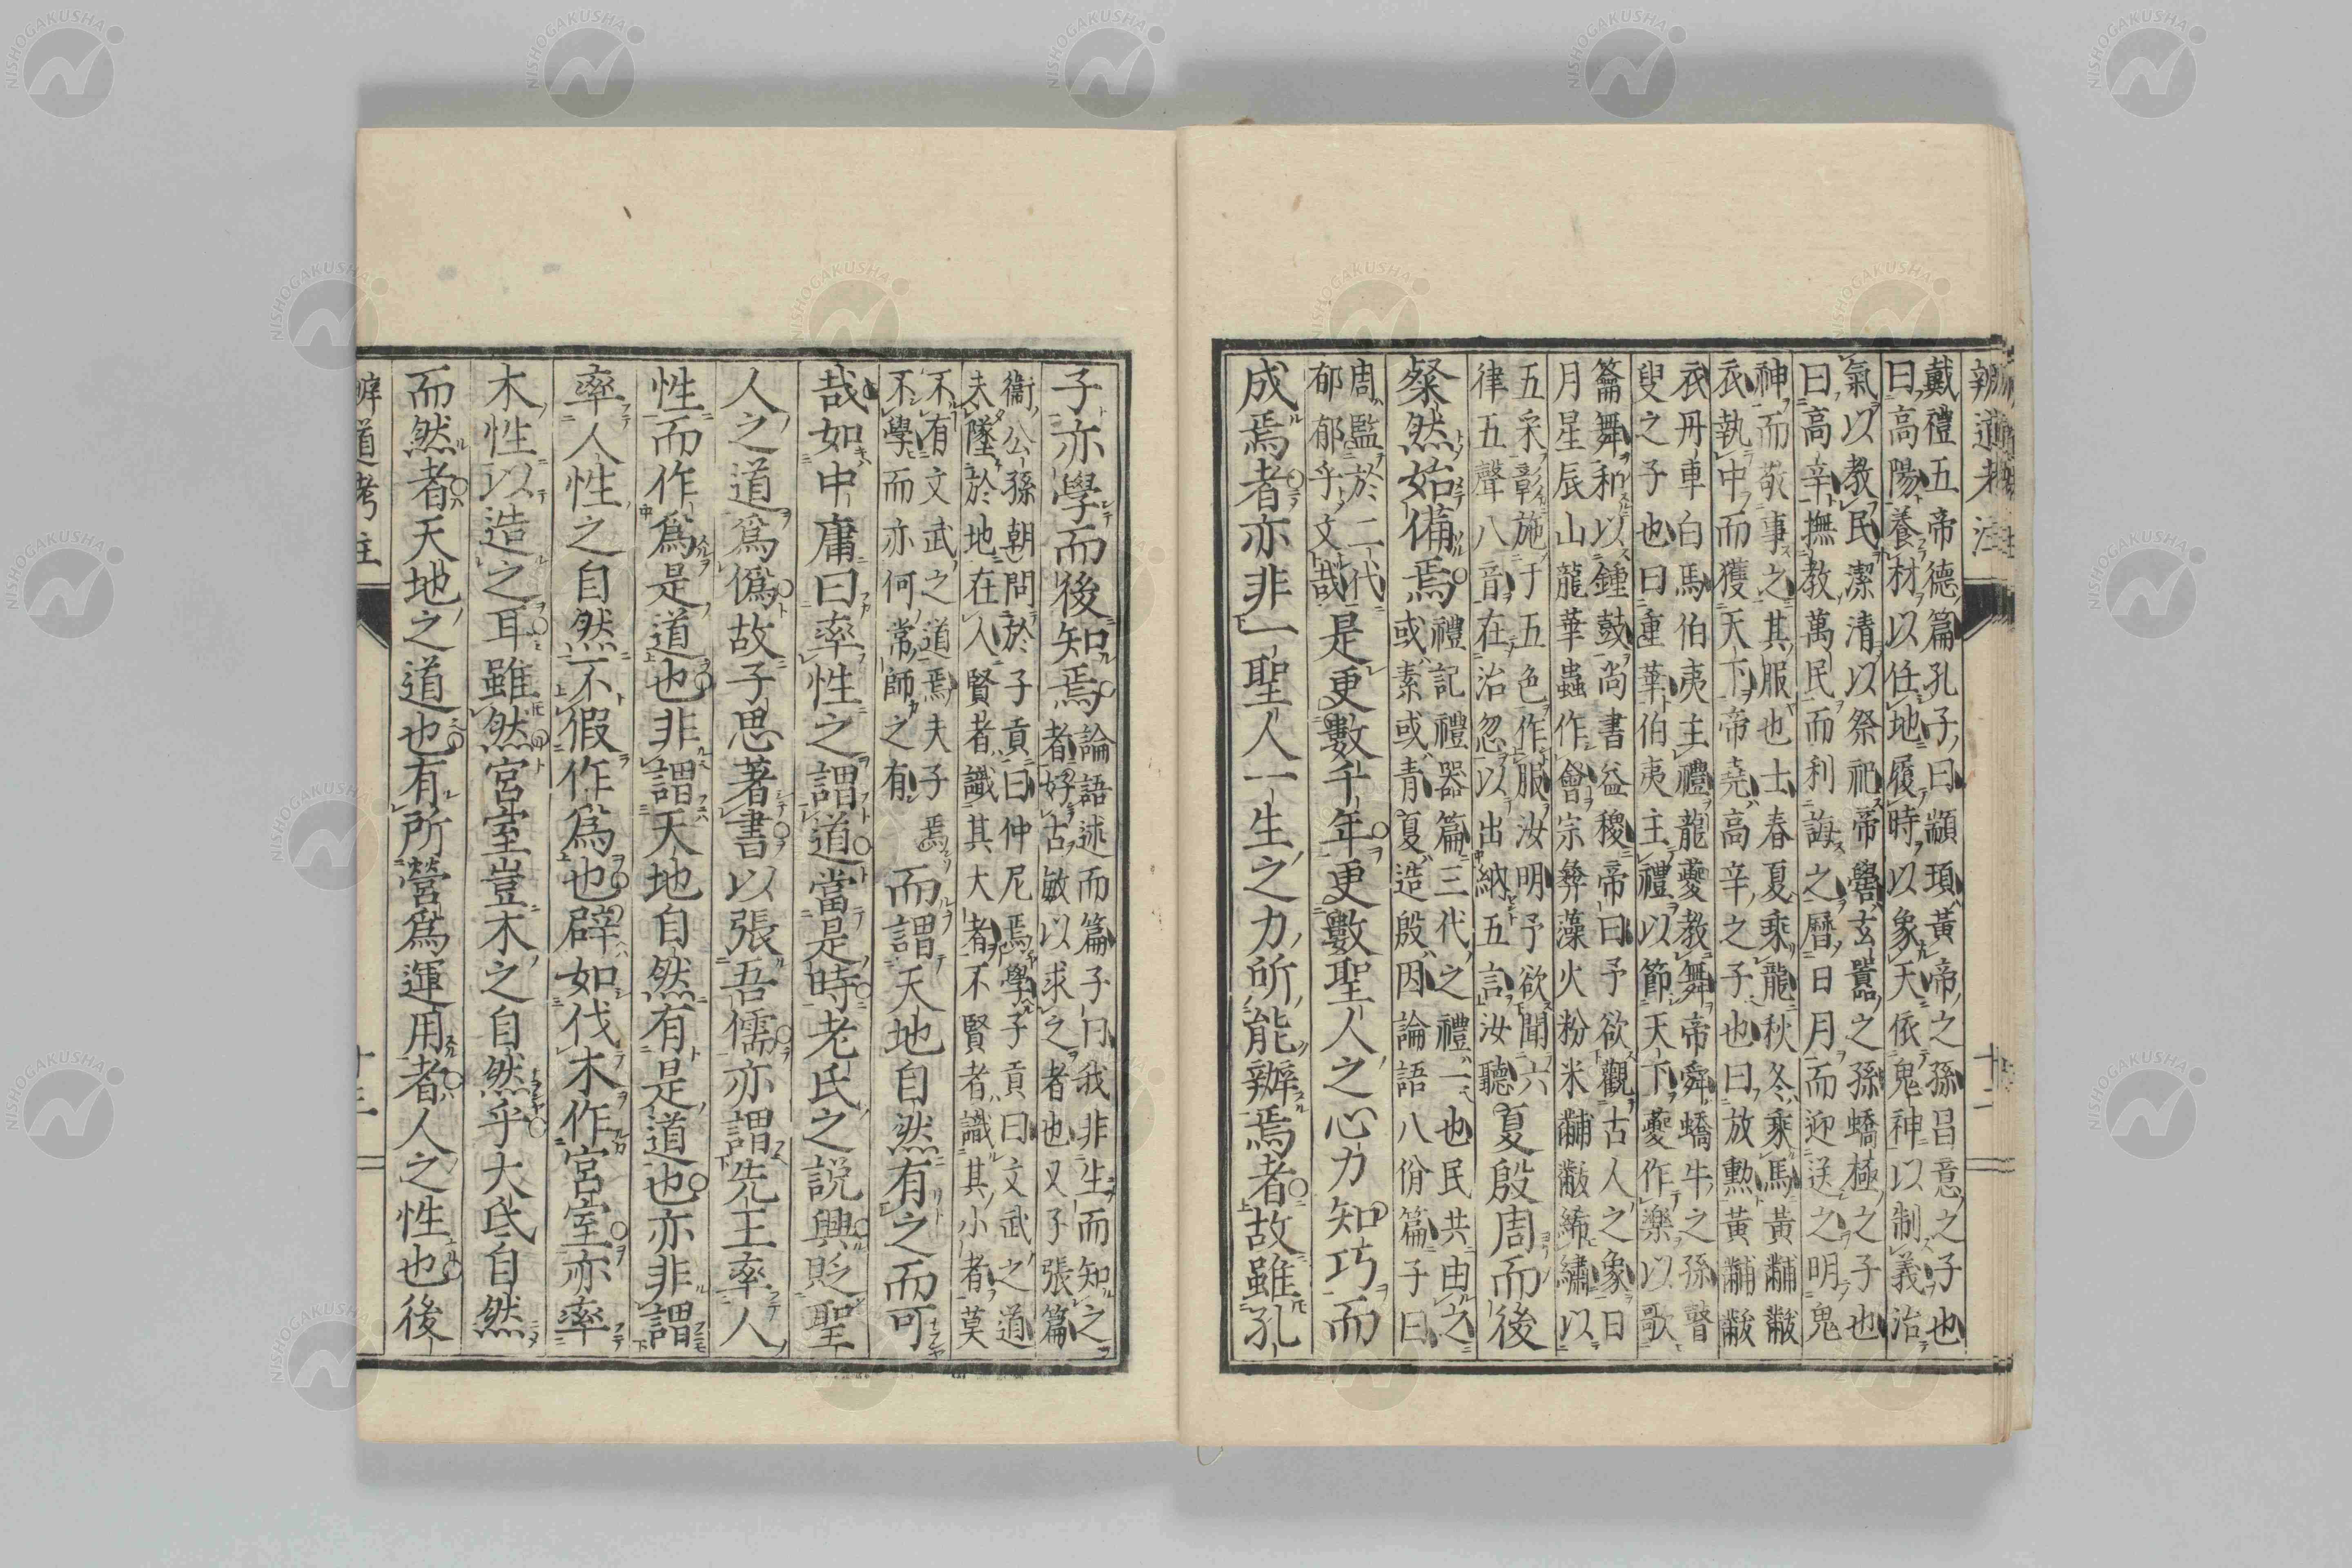 辨道考注
十二
戴禮五帝德篇孔子曰顓頊黃帝之孫昌意之子也
曰高陽養材以任地履時以象天依鬼神以制義治
氣以教民潔清以祭祀帝嚳玄囂之孫蟜極之子也
曰高辛撫教萬民而利誨之曆日月而迎送之明鬼
神而敬事之其服也士春夏乘龍秋冬乘馬黃黼黻
衣執中而獲天下帝堯高辛之子也曰放勲黃黼黻
衣丹車白馬伯夷主禮龍夔教舞帝舜蟜牛之孫瞽
叟之子也曰重華伯夷主禮以節天下夔作樂以歌
籥舞和以鍾鼓尚書益稷帝曰予欲觀古人之象日
月星辰山龍華蟲作會宗彝藻火粉米黼黻絺繡以
五采彰施于五色作服汝明予欲聞六
律五聲八音在治忽以出納五言汝聽
夏殷周而後
粲然始備焉
禮記禮器篇三代之禮一也民共由之
或素或青夏造殷因論語八佾篇子曰
周監於二代
郁郁乎文哉
是更數千年更數聖人之心力知巧而
成焉者亦非一聖人一生之力所能辨焉者故雖孔
子亦學而後知焉
論語述而篇子曰我非生而知之
者好古敏以求之者也又子張篇
衞公孫朝問於子貢曰仲尼焉學子貢曰文武之道
未墜於地在人賢者識其大者不賢者識其小者莫
不有文武之道焉夫子焉
不學而亦何常師之有
而謂天地自然有之而可
哉如中庸曰率性之謂道當是時老氏之說興貶聖
人之道爲僞故子思著書以張吾儒亦謂先王率人
性而作爲是道也非謂天地自然有是道也亦非謂
率人性之自然不假作爲也辟如伐木作宮室亦率
木性以造之耳雖然宮室豈木之自然乎大氐自然
而然者天地之道也有所營爲運用者人之性也後
辨道考注
十三